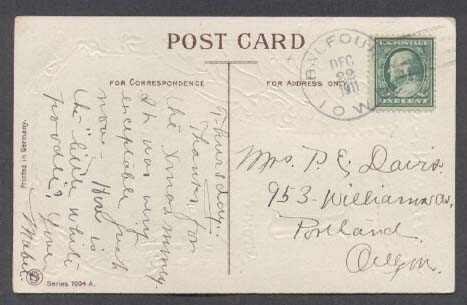 POST CARD
FOR CORRESPONDENCE
FOR ADDRESS ONLY
BALFOUR
DEC
22
1911
IOWA
U.S. POSTAGE
ONE CENT
Thursday.
Thanks for
the Xmas money.
It was very
exceptable just
now - How is
the little white
poodle? Love
Mabel.
Mrs. P. E. Davis.
953 - Williams av.
Portland
Oregon.
Printed in Germany.
Series 7094 A.